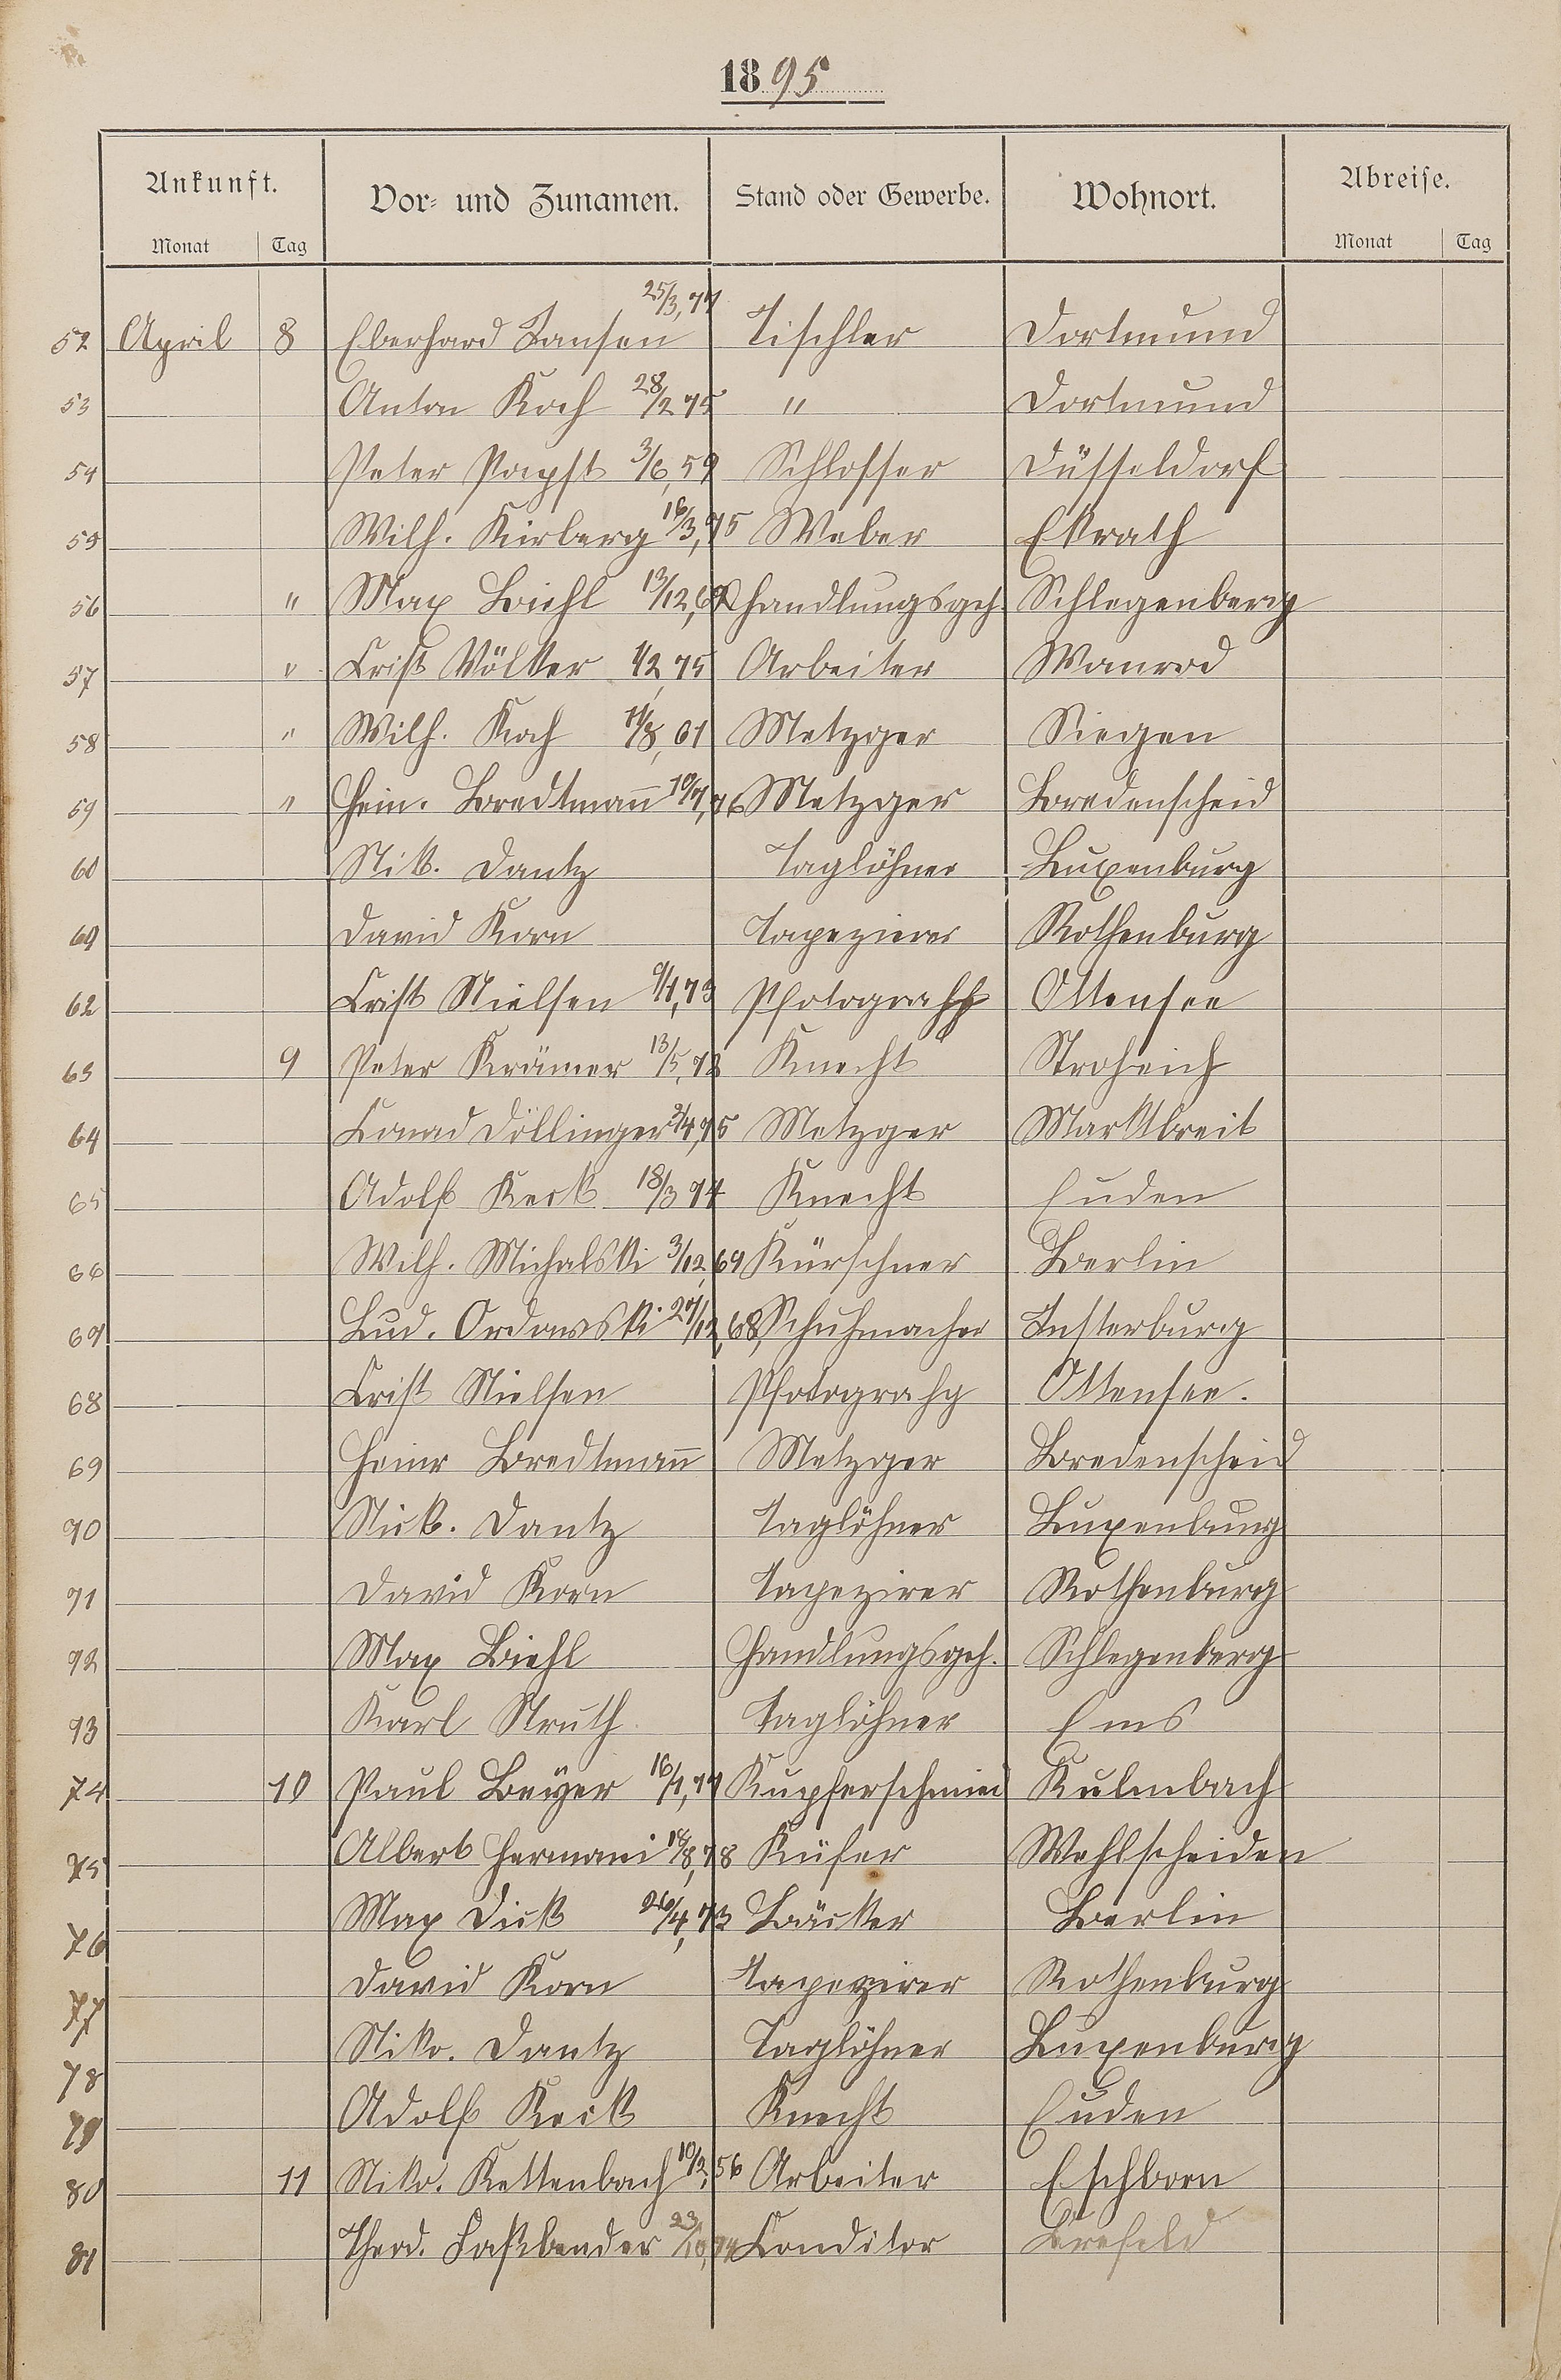 1895
Ankunft. Vor- und Zunamen. Stand oder Gewerbe. Wohnort. Abreise.
Monat Tag Monat Tag
52 April 8 Eberhard Jansen 25/3,77 Tischler Dortmund
53 Anton Koch 28/2 75 " Dortmund
54 Peter Papst 3/6,59 Schlosser Düsseldorf
55 Wilh. Kirberg 16/3,75 Weber Ekrath
56 " Max Biehl 13/12, Handlungsgeh. Schlegenberg
57 " Crist Völker 1/2,75 Arbeiter Wanrod
58 " Wilh. Koch 11/8,61 Metzger Siegen
59 " Hein. Bredtmañ 10/7,76 Metzger Bredenscheid
60 Nik. Dantz Taglöhner Luxenburg
61 David Korn Tapezierer Rothenburg
62 Crist Nielsen 9/1,73 Photograhp Ottensee
63 9 Peter Krämer 13/5,72 Knecht Stroheich
64 Conrad Döllinger 2/4,75 Metzger Marktbreit
65 Adolf Keck 18/3 74 Knecht Euden
66 Wilh. Michalski 3/12,69 Kürschner Berlin
67 Lud. Ordowski 27/12,68, Schuhmacher Insterburg
68 Crist Nielsen Photograhp Ottensee.
69 Heinr Bredtmañ Metzger Bredenscheid
70 Nick. Dantz Taglöhner Luxenburg
71 David Korn Tapezirer Rothenburg
72 Max Biehl Handlungsgeh. Schlegenberg
73 Karl Struth Taglöhner Ems
74 10 Paul Beyer 16/1,77 Kupferschmied Kulmbach
75 Albert Hermani 18/8,78 Küfer Wahlscheiden
76 Max Dick 26/4,73 Bäcker Berlin
77 David Korn Tapezirer Rothenburg
78 Niko. Dantz Taglöhner Luxenburg
79 Adolf Keck Knecht Euden
80 11 Niko. Kettenbach 10/2,56 Arbeiter Eschborn
81 Theod. Faßbender 23/10,74 Conditor Crefeld